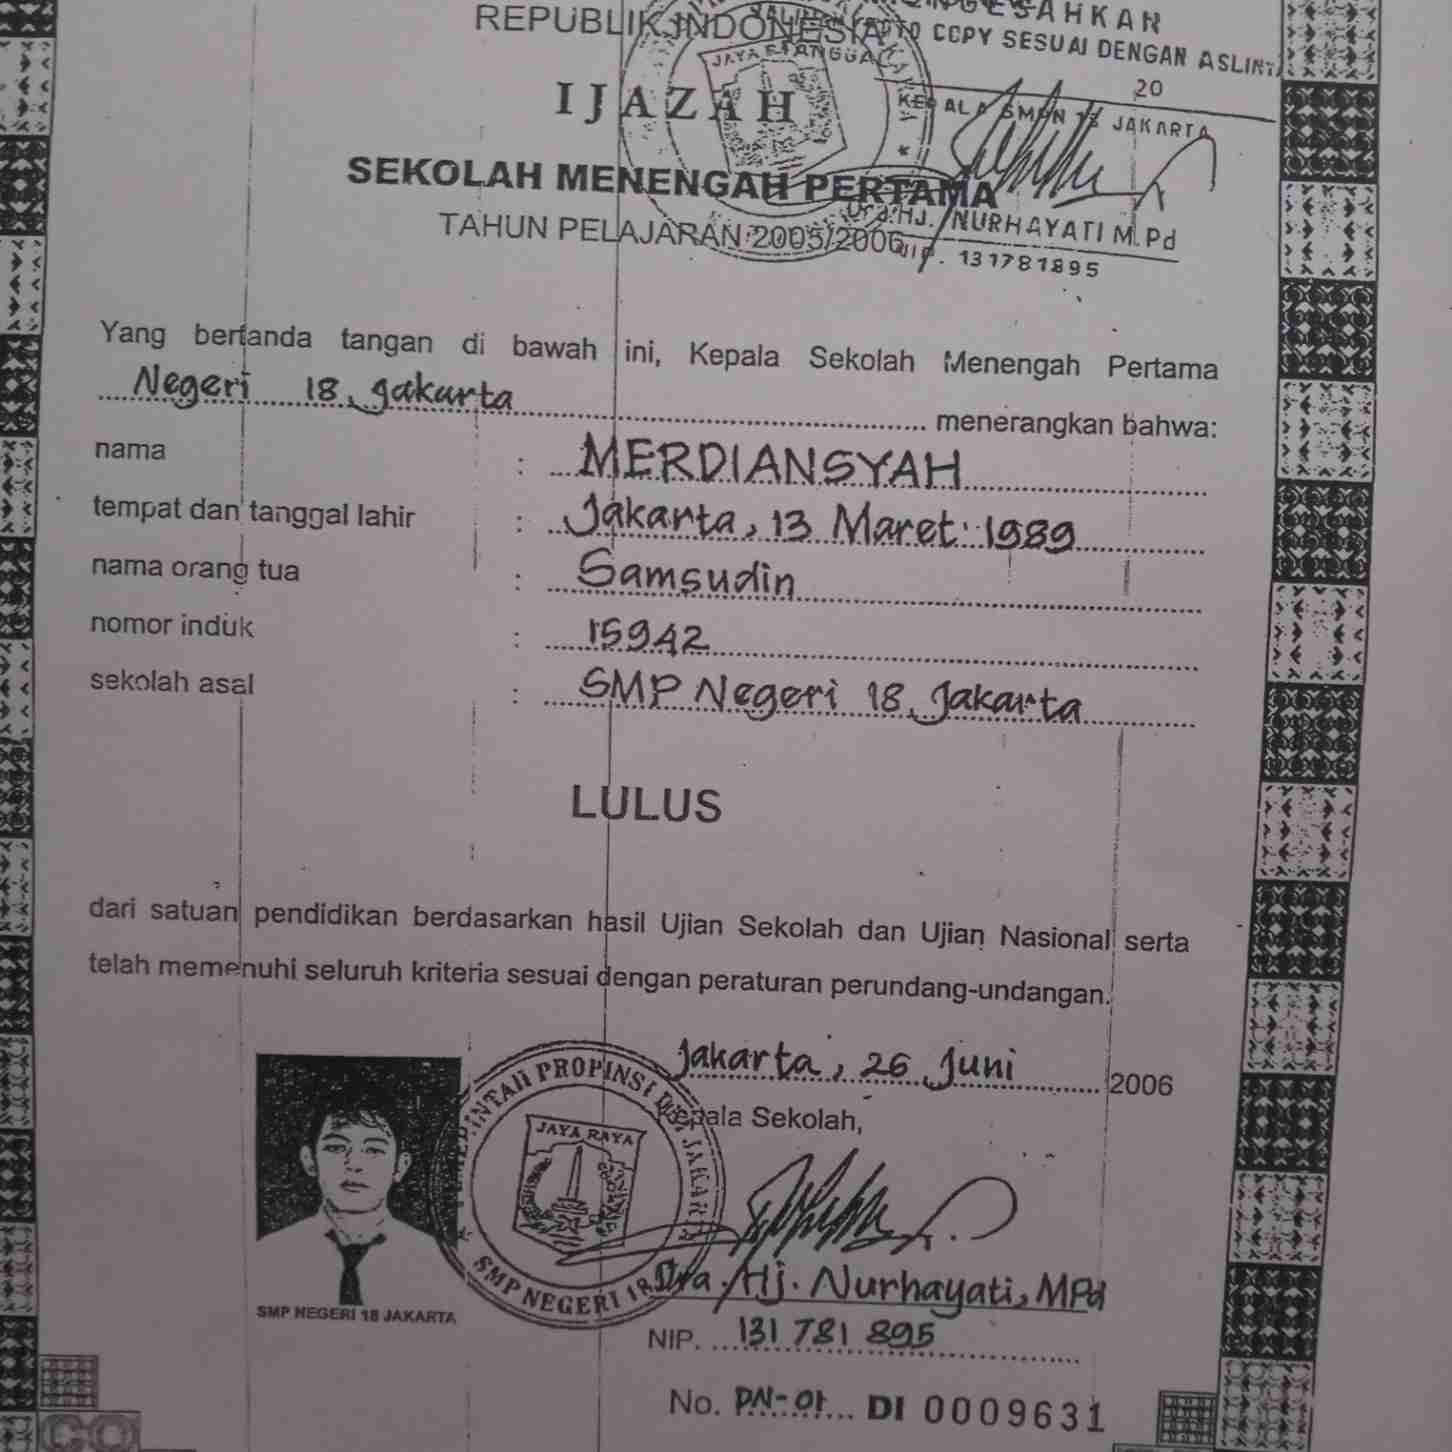 REPUBLIK INDONESIA
COPY SESUAI DENGAN ASLINYA
20
IJAZAH
KEPALA SMPN 18 JAKARTA
SEKOLAH MENENGAH PERTAMA
Dra. HJ. NURHAYATI M.Pd
TAHUN PELAJARAN 2005/2006
NIP. 131781895
Yang bertanda tangan di bawah ini, Kepala Sekolah Menengah Pertama
Negeri 18, Jakarta menerangkan bahwa:
nama : MERDIANSYAH
tempat dan tanggal lahir : Jakarta, 13 Maret 1989
nama orang tua : Samsudin
nomor induk : 15942
sekolah asal : SMP Negeri 18, Jakarta
LULUS
dari satuan pendidikan berdasarkan hasil Ujian Sekolah dan Ujian Nasional serta
telah memenuhi seluruh kriteria sesuai dengan peraturan perundang-undangan.
Jakarta, 26 Juni 2006
Kepala Sekolah,
PEMERINTAH PROPINSI DKI JAKARTA
JAYA RAYA
SMP NEGERI 18
Dra. Hj. Nurhayati, MPd
SMP NEGERI 18 JAKARTA
NIP. 131 781 895
No. DN-01 DI 0009631